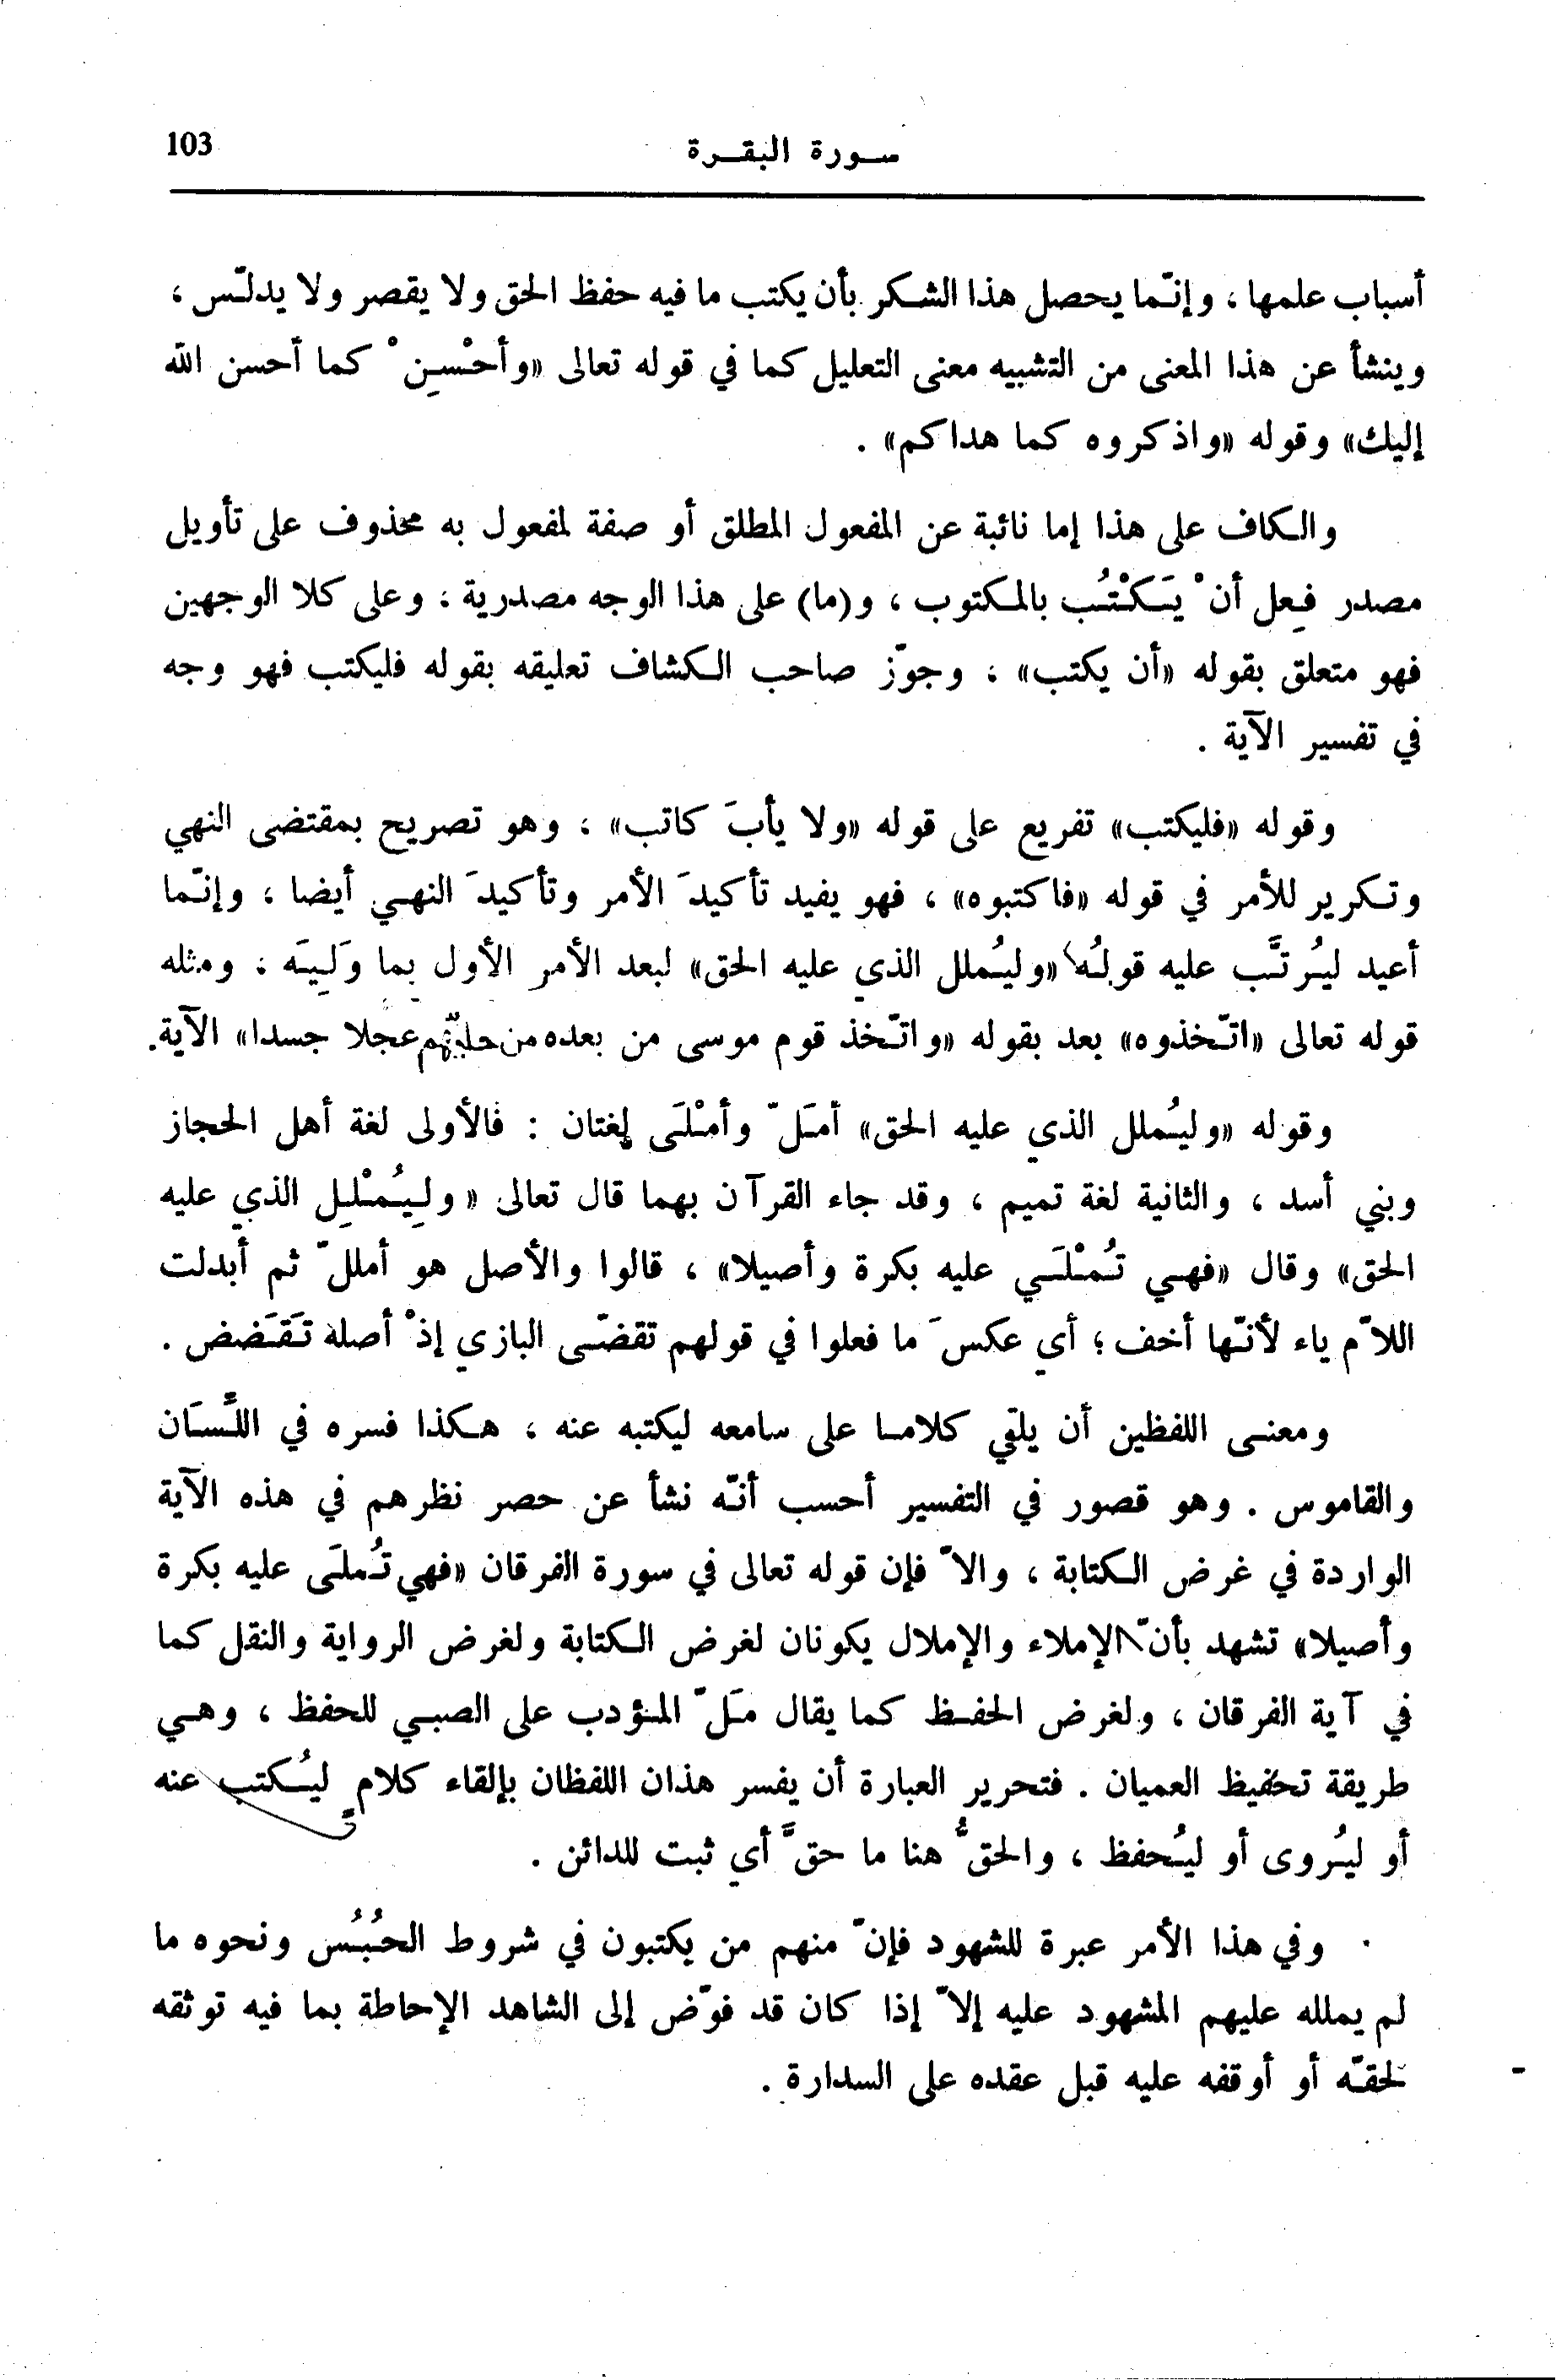 103
سورة البقرة
أسباب علمها ، وإنّما يحصل هذا الشكر بأن يكتب ما فيه حفظ الحق ولا يقصر ولا يدلّس ،
وينشأ عن هذا المعنى من التشبيه معنى التعليل كما في قوله تعالى «وأحْسِنْ كما أحسن الله
إليك» وقوله «واذكروه كما هداكم» .
والكاف على هذا إما نائبة عن المفعول المطلق أو صفة لمفعول به محذوف على تأويل
مصدر فِعل أنْ يَكْتُب بالمكتوب ، و(ما) على هذا الوجه مصدرية ، وعلى كلا الوجهين
فهو متعلق بقوله «أن يكتب» ، وجوّز صاحب الكشاف تعليقه بقوله فليكتب فهو وجه
في تفسير الآية .
وقوله «فليكتب» تفريع على قوله «ولا يأبَ كاتب» ، وهو تصريح بمقتضى النهي
وتكرير للأمر في قوله «فاكتبوه» ، فهو يفيد تأكيدَ الأمر وتأكيدَ النهي أيضا ، وإنّما
أعيد ليُرتَّب عليه قولُه «وليُملل الذي عليه الحق» لبعد الأمر الأول بما وَلِيَه ، ومثله
قوله تعالى «اتّخذوه» بعد بقوله «واتّخذ قوم موسى من بعده من حليّهم عجلا جسدا» الآية.
وقوله «وليُملل الذي عليه الحق» أمَلّ وأمْلَى لغتان : فالأولى لغة أهل الحجاز
وبني أسد ، والثانية لغة تميم ، وقد جاء القرآن بهما قال تعالى «ولِيُمْلِل الذي عليه
الحق» وقال «فهي تُمْلَي عليه بكرة وأصيلا» ، قالوا والأصل هو أمللّ ثم أبدلت
اللاّم ياء لأنّها أخف ؛ أي عكسَ ما فعلوا في قولهم تقضّى البازي إذْ أصله تَقَضض .
ومعنى اللفظين أن يلقي كلاما على سامعه ليكتبه عنه ، هكذا فسره في اللّسَان
والقاموس . وهو قصور في التفسير أحسب أنّه نشأ عن حصر نظرهم في هذه الآية
الواردة في غرض الكتابة ، والاّ فإن قوله تعالى في سورة الفرقان «فهي تُملَى عليه بكرة
وأصيلا» تشهد بأنّ الإملاء والإملال يكونان لغرض الكتابة ولغرض الرواية والنقل كما
في آية الفرقان ، ولغرض الحفظ كما يقال مَلّ المؤدب على الصبي للحفظ ، وهي
طريقة تحفيظ العميان . فتحرير العبارة أن يفسر هذان اللفظان بإلقاء كلام ليُكتب عنه
أو ليُروى أو ليُحفظ ، والحقُّ هنا ما حقَّ أي ثبت للدائن .
وفي هذا الأمر عبرة للشهود فإنّ منهم من يكتبون في شروط الحُبُس ونحوه ما
لم يملله عليهم المشهود عليه إلاّ إذا كان قد فوّض إلى الشاهد الإحاطة بما فيه توثقه
لحقّه أو أوقفه عليه قبل عقده على السدارة .